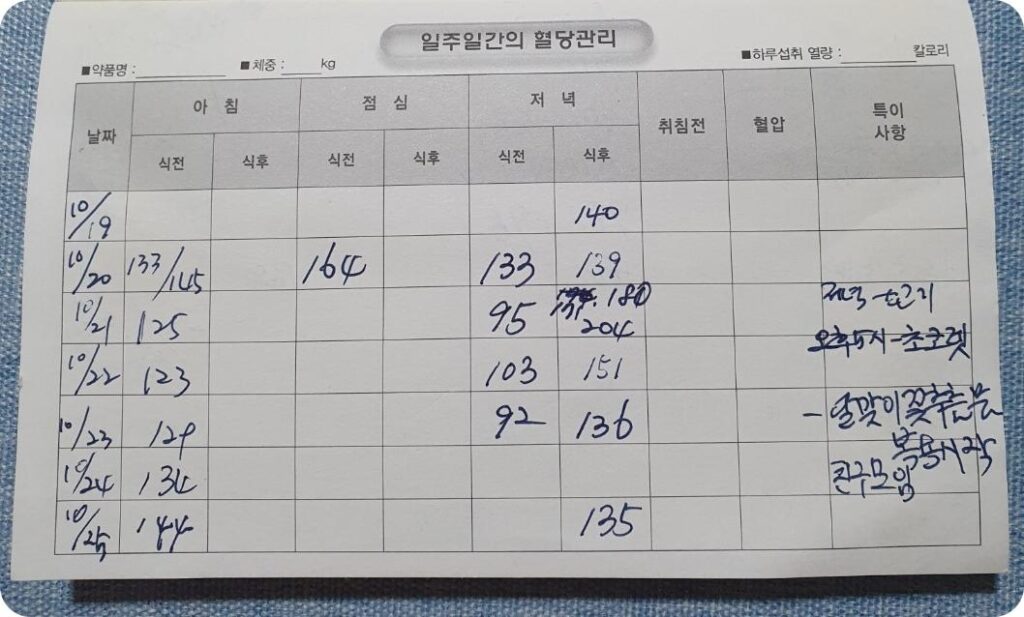 일주일간의 혈당관리
■약품명 : ■체중 : kg ■하루섭취 열량 : 칼로리
날짜 아 침 점 심 저 녁 취침전 혈압 특이
사항
식전 식후 식전 식후 식전 식후
10/19 140
10/20 133/145 164 133 139
10/21 125 95 180
204 저녁-소고기
오후5시-초코렛
10/22 123 103 151
10/23 129 92 136 -달맞이꽃추출물
복용시작
10/24 134 친구모임
10/25 144 135